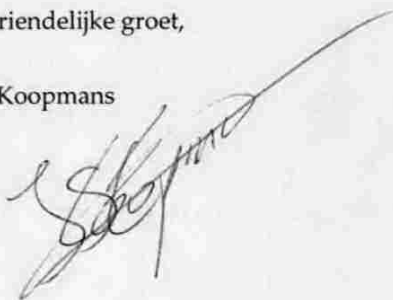 riendelijke groet,
Koopmans